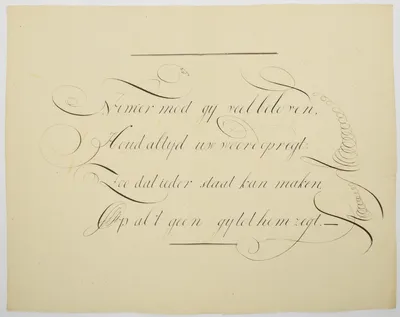 Nimer moet gy veel beloven,
Houd altyd uw woord opregt:
Zoo dat ieder staat kan maken
Op al 't geen gy tot hem zegt.